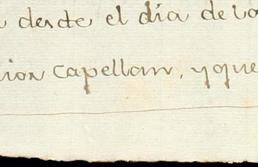 desde el dia de la
cion Capellan, y que